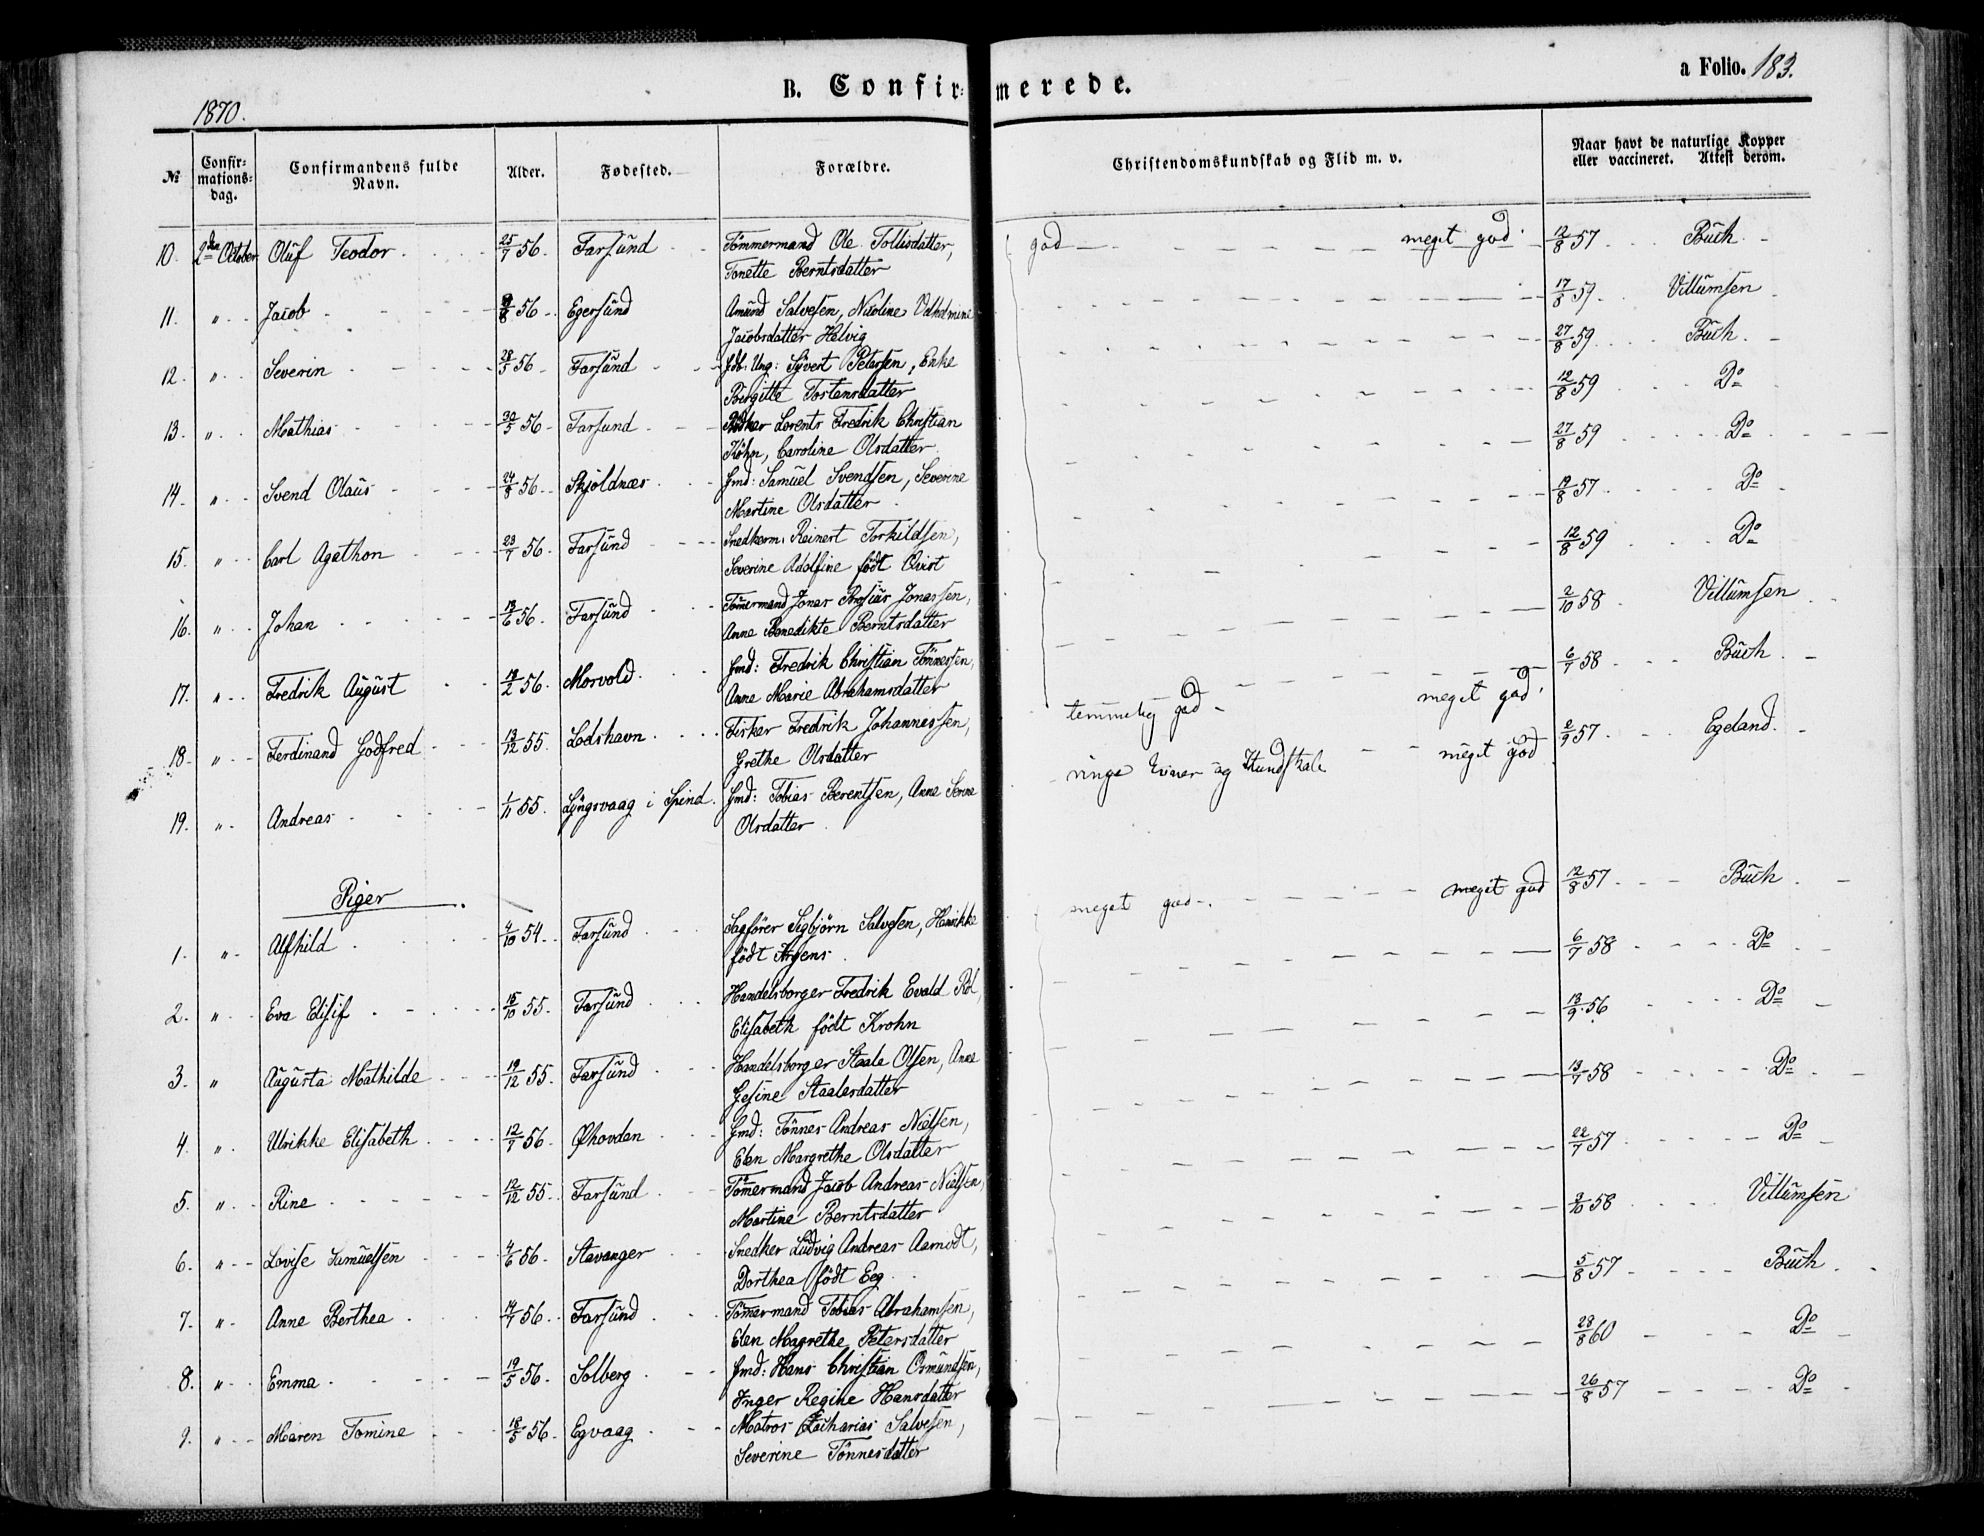 1870.
B. Confirmerede.
a Folio. 183.
№ Confirmations-dag. Confirmandens fulde Navn. Alder. Fødested. Forældre. Christendomskundskab og Flid m. v. Naar havt de naturlige Kopper eller vaccineret. Attest derom.
10. 2den October Oluf Teodor 25/7 56 Farsund Tömmermand Ole Tollisdatter, god meget god 12/8 57 Buch
Tonette Berntsdatter
11. " Jacob /8 56 Egersund Amund Salvesen, Nicoline Vilhelmine 17/8 59 Villumsen
Jacobsdatter Helvig
12. " Severin 28/5 56 Farsund fdb. Ung: Syvert Petersen, Enke 27/8 59 Buch
Birgitte Tostensdatter
13. " Mathias 30/5 56 Farsund Lorents Fredrik Christian 12/8 59 Do
Köhn, Caroline Olsdatter
14. " Svend Olaus 24/8 56 Skjoldnæs Gmd: Samuel Svendsen, Severine 27/8 59 Do
Martine Olsdatter
15. " Carl Agathon 23/7 56 Farsund Snedkerm. Reinert Torkildsen, 19/8 57 Do
Severine Adolfine født Qvist
16. " Johan 13/6 56 Farsund Tömermand Jonas Jonassen, 12/8 59 Do
Anne Benedikte Berntsdatter
17. " Fredrik August 18/2 56 Morvold Gmd: Fredrik Christian Tönnessen, 2/10 58 Villumsen
Anne Marie Abrahamsdatter
18. " Ferdinand Godfred 13/12 55 Lodshavn Fisker Fredrik Johannessen, temmelig god meget god 6/7 58 Buch
Grethe Olsdatter
19. " Andreas 1/11 55 Lyngsvaag i Spind Gmd: Tobias Berentsen, Anne Serine ringe Evner og Kundskab meget god 2/9 57 Egeland
Olsdatter
Piger
1. " Alfhild 4/10 54 Farsund Sagförer Sigbjörn Salvesen, Henrikke meget god meget god 12/8 57 Buch
født
2. " Eva Elisif 15/10 55 Farsund Handelsborger Fredrik Evald 6/7 58 Do
Elisabeth födt Krohn
3. " Augusta Mathilde 19/12 55 Farsund Handelsborger Staale Olsen, Anne 13/9 56 Do
Gesine Staalesdatter
4. " Ulrikke Elisabeth 12/7 56 Øhovden Gmd: Tönnes Andreas Nielsen, 13/7 58 Do
Elen Margrethe Olsdatter
5. " Rine 12/12 55 Farsund Tömermand Jacob Andreas Nielsen, 22/7 57 Do
Martine Berntsdatter
6. " Lovise Samuelsen 4/6 56 Stavanger Snedker Ludvig Andreas Aamodt, 2/10 58 Villumsen
Dorthea född Eeg
7. " Anne Berthea 14/7 56 Farsund Tömermand Tobias Abrahamsen, 5/8 57 Buch
Elen Magrethe Petersdatter
8. " Emma 19/5 56 Solberg Gmd: Hans Christian Osmundsen, 28/8 60 Do
Inger Regine Hansdatter
9. " Maren Tomine 18/5 56 Egvaag Matros Zacharias Salvesen, 26/8 57 Do
Severine Tönnesdatter